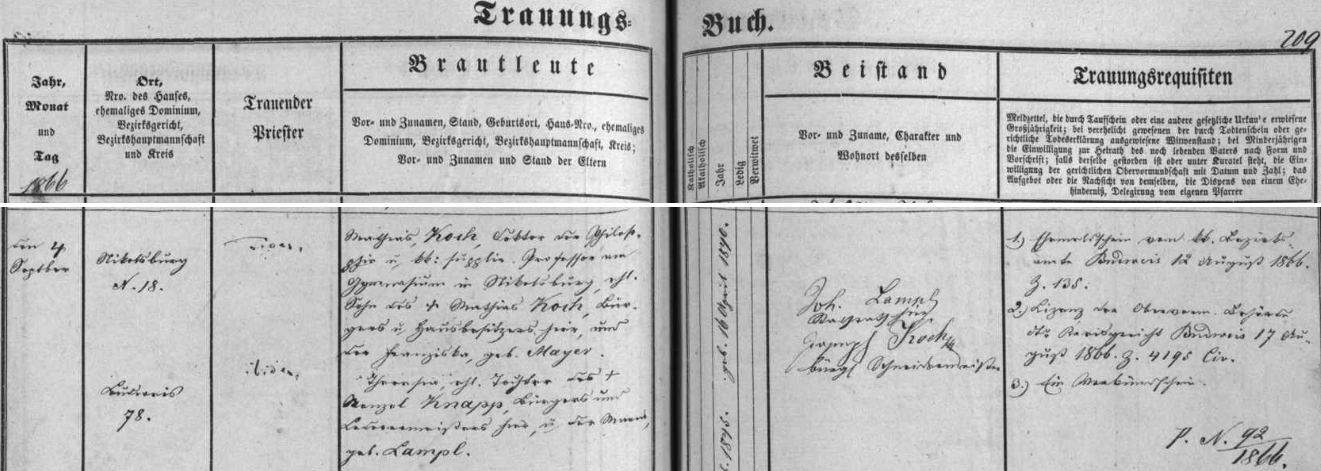 Trauungs-
Buch.
209
Jahr,
Monat
und
Tag
1866
Ort,
Nro. des Hauses,
ehemaliges Dominium,
Bezirksgericht,
Bezirkshauptmannschaft
und Kreis
Trauender
Priester
Brautleute
Vor- und Zunamen, Stand, Geburtsort, Haus-Nro., ehemaliges
Dominium, Bezirksgericht, Bezirkshauptmannschaft, Kreis;
Vor- und Zunamen und Stand der Eltern
Katholisch
Akatholisch
Jahr
Ledig
Verwitwet
Beistand
Vor- und Zuname, Charakter und
Wohnort desselben
Trauungsrequisiten
Meldzettel, die durch Taufschein oder eine andere gesetzliche Urkunde erwiesene
Großjährigkeit; bei verehelicht gewesenen der durch Todtenschein oder ge-
richtliche Todeserklärung ausgewiesene Witwenstand; bei Minderjährigen
die Einwilligung zur Heirath des noch lebenden Vaters nach Form und
Vorschrift; falls derselbe gestorben ist oder unter Kuratel steht, die Ein-
willigung der gerichtlichen Obervormundschaft mit Datum und Zahl; das
Aufgebot oder die Nachsicht von demselben, die Dispens von einem Ehe-
hinderniß, Delegirung vom eigenen Pfarrer
den 4
Septber
Nikolsburg
N. 18.
Budweis
78.
Mathias Koch, Doktor der Philoso-
phie u. kk. supplir. Professor am
Gymnasium in Nikolsburg, ehl.
Sohn des + Mathias Koch, Bür-
gers u Hausbesitzers hier, und
der Franziska, geb. Mayer.
Theresia, ehl. Tochter des +
Wenzel Knapp, Bürgers und
Lederermeisters hier, u. der Maria,
geb. Lampl.
geb. 16 April 1840.
1845.
Joh. Lampl
Joseph Koch
bürgl Schneidermeister
1.) Ehemeldschein vom kk. Bezirks-
amte Budweis 12 August 1866.
Z. 135.
2.) Lizenz der Obervorm. Behörde
Kreisgericht Budweis 17 Au-
gust 1866. Z. 4195 Civ.
3.) Ein Verkündschein.
P. N. 92/1866.